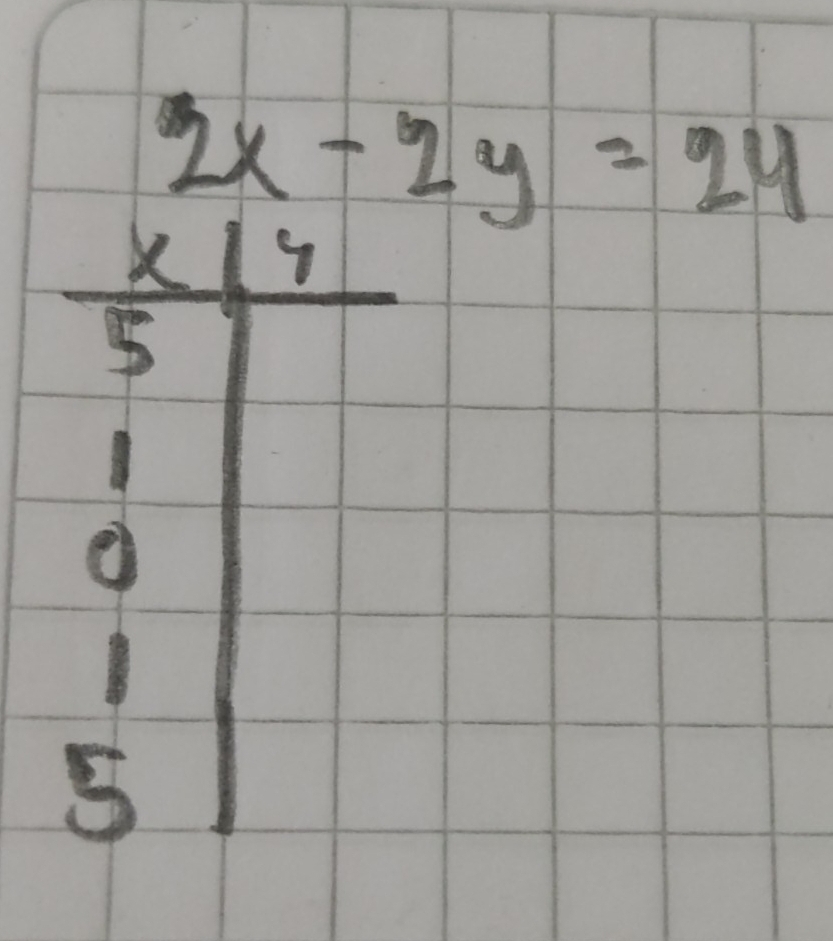 2x - 2y = 24
x | y
5
1
0
1
5